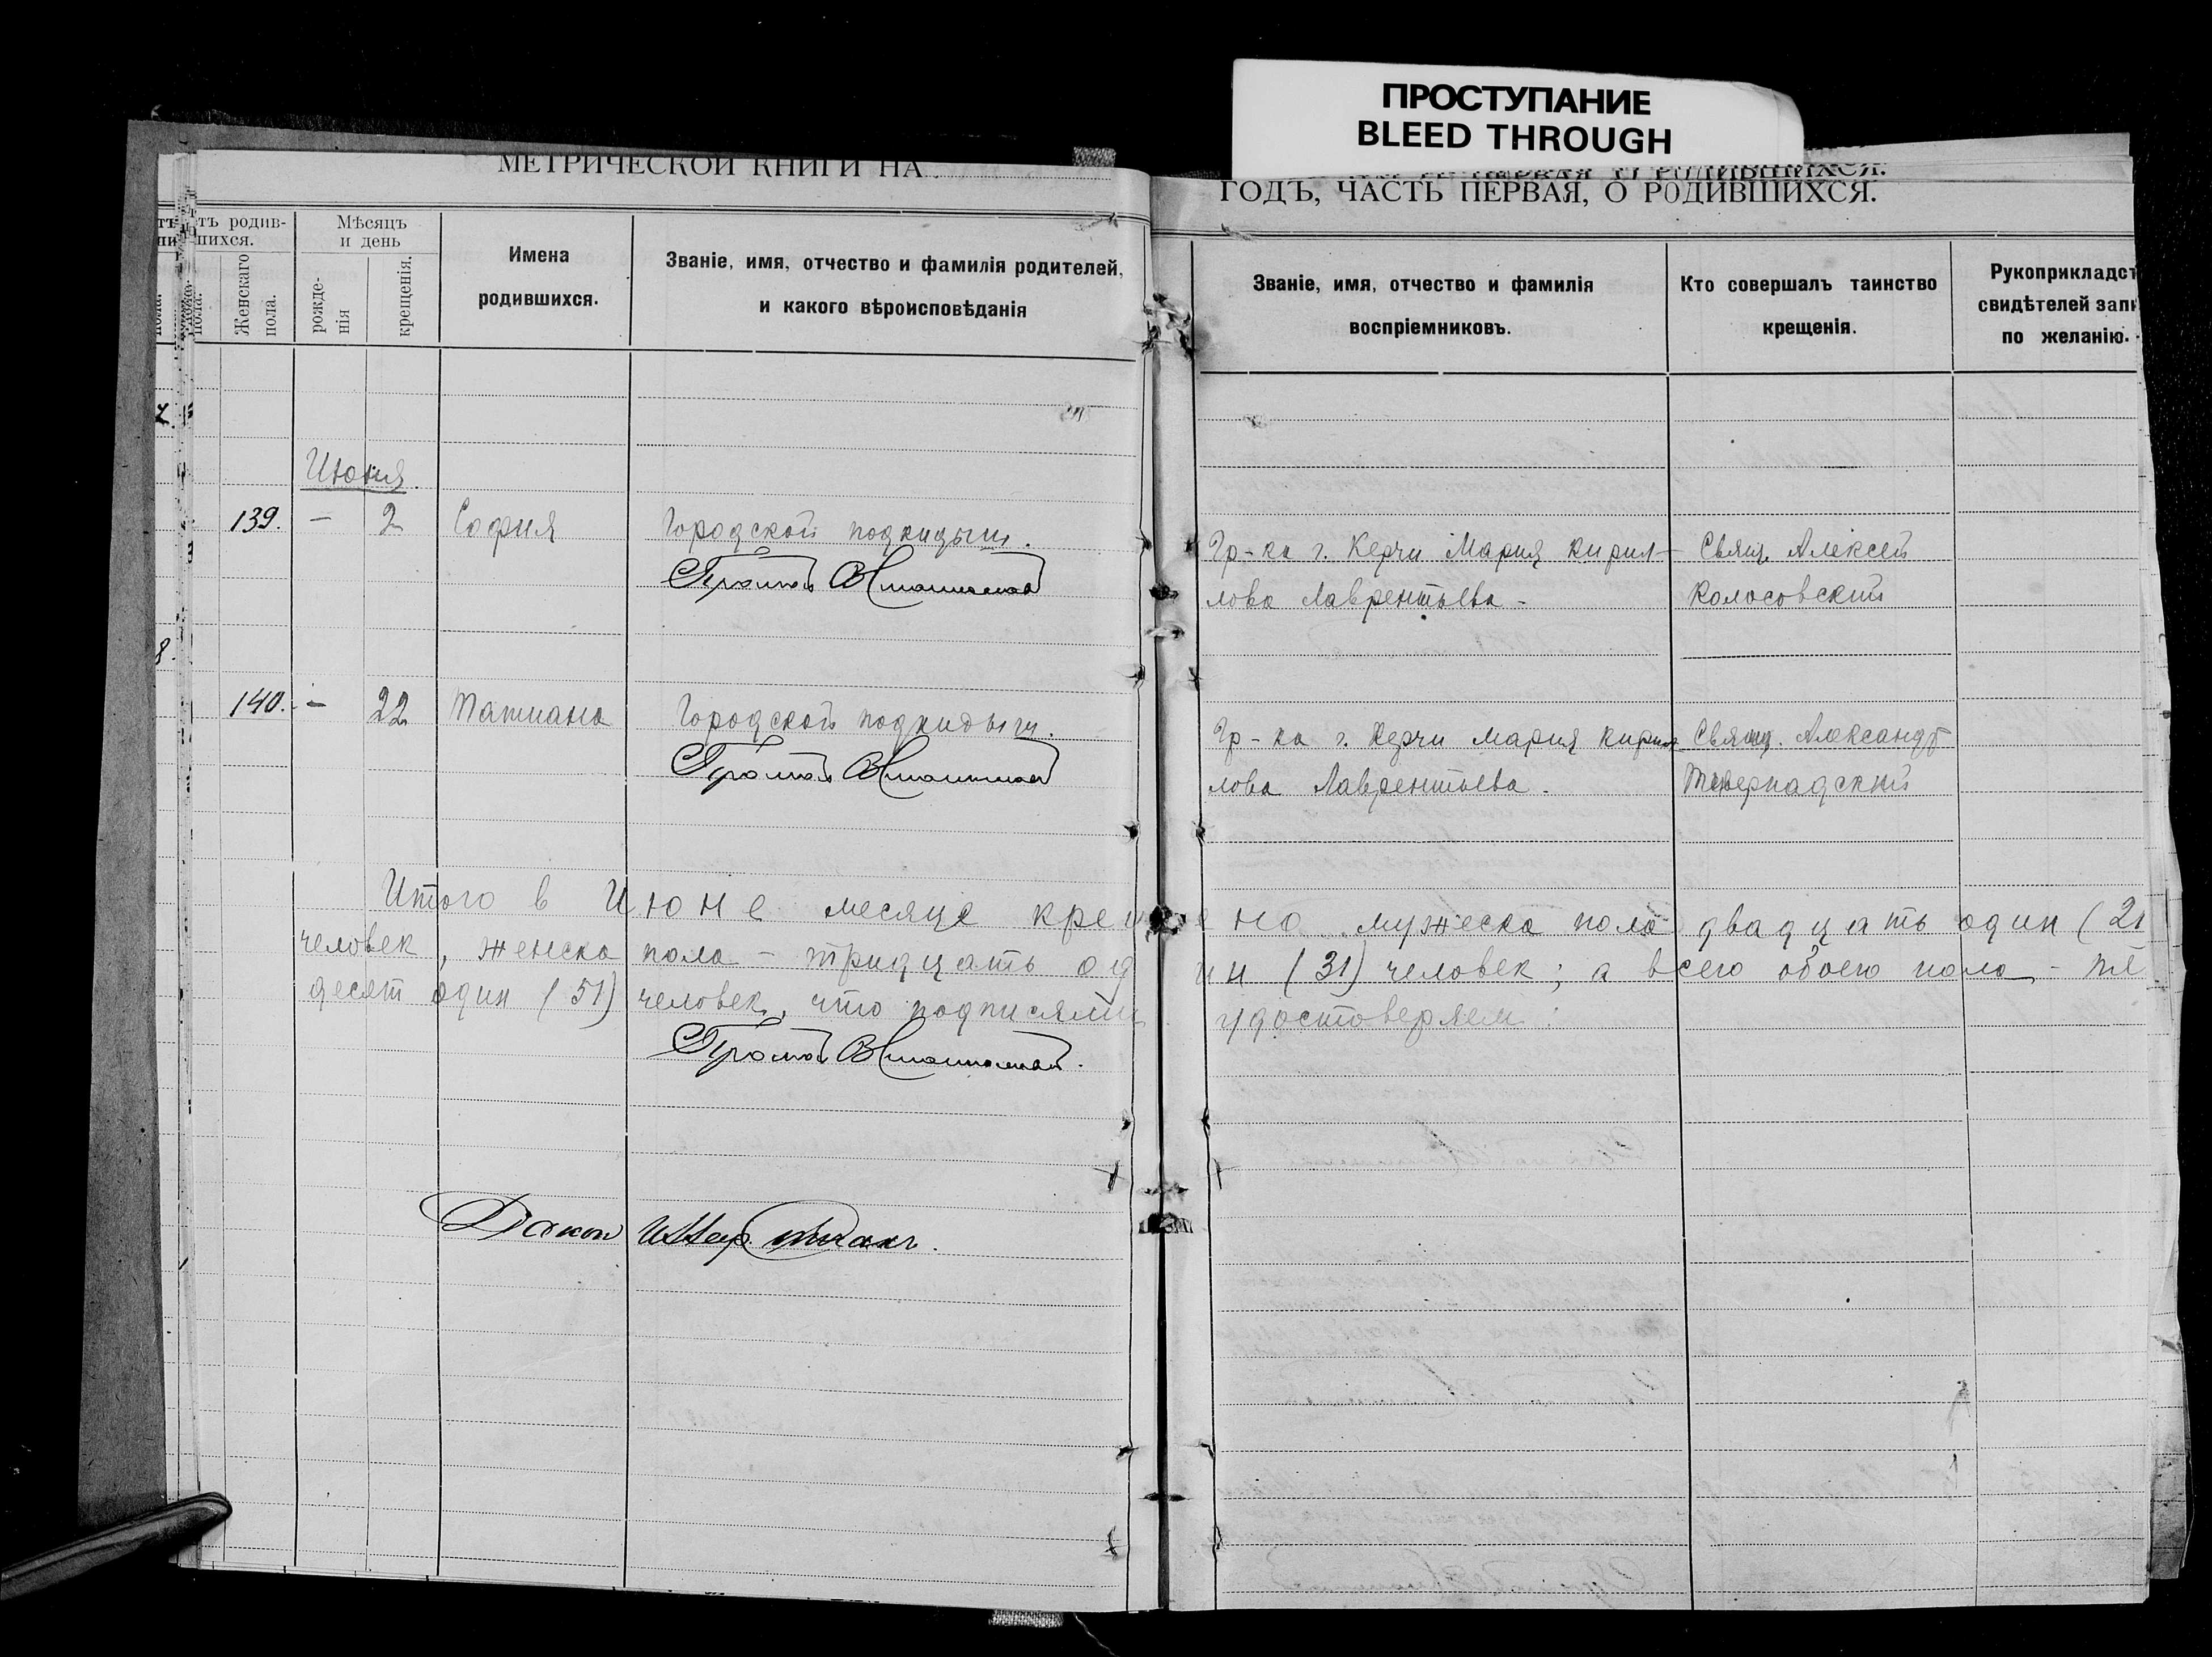 ПРОСТУПАНИЕ
BLEED THROUGH
МЕТРИЧЕСКОЙ КНИГИ НА
ГОДЪ, ЧАСТЬ ПЕРВАЯ, О РОДИВШИХСЯ.
тъ родив-
шихся.
Женскаго
пола.
Мѣсяцъ
и день
рожде-
нія
крещенія.
Имена
родившихся.
Званіе, имя, отчество и фамилія родителей,
и какого вѣроисповѣданія
Званіе, имя, отчество и фамилія
воспріемниковъ.
Кто совершалъ таинство
крещенія.
Рукоприкладст
свидѣтелей запи
по желанію.
Июня.
139. - 2 София Городской подкидыш.
Гр-ка г. Керчи Мария Кирил-
лова Лаврентьева -
Свящ. Алексей
Колосовский
140. - 22 Татиана Городской подкидыш.
Гр-ка г. Керчи Мария Кирил-
лова Лаврентьева.
Свящ. Александр
Итого в Июне месяце крещено мужеска пола двадцать один (21
человек, женска пола - тридцать один (31) человек; а всего обоего пола - пя
десят один (51) человек, что подписями удостоверяем: